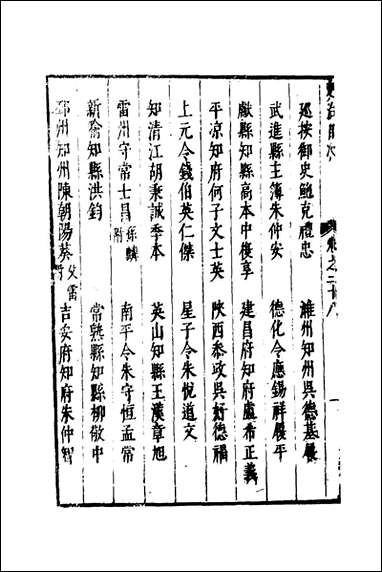 卷之二十八
巡按御史鮑克禮忠　濰州知州吳德基履
武進縣主簿朱仲安　德化令應錫祥履平
獻縣知縣高本中復享　建昌府知府盧希正義
平凉知府何子文士英　陜西叅政吳好德福
上元令錢伯英仁傑　星子令朱悅道文
知清江胡秉誠季本　英山知縣王漢章旭
雷州守常士昌孫麟附　南平令朱守恒孟常
新喻知縣洪鈞　常熟縣知縣柳敬中
知州陳朝陽葵父雷　吉安府知府朱仲智